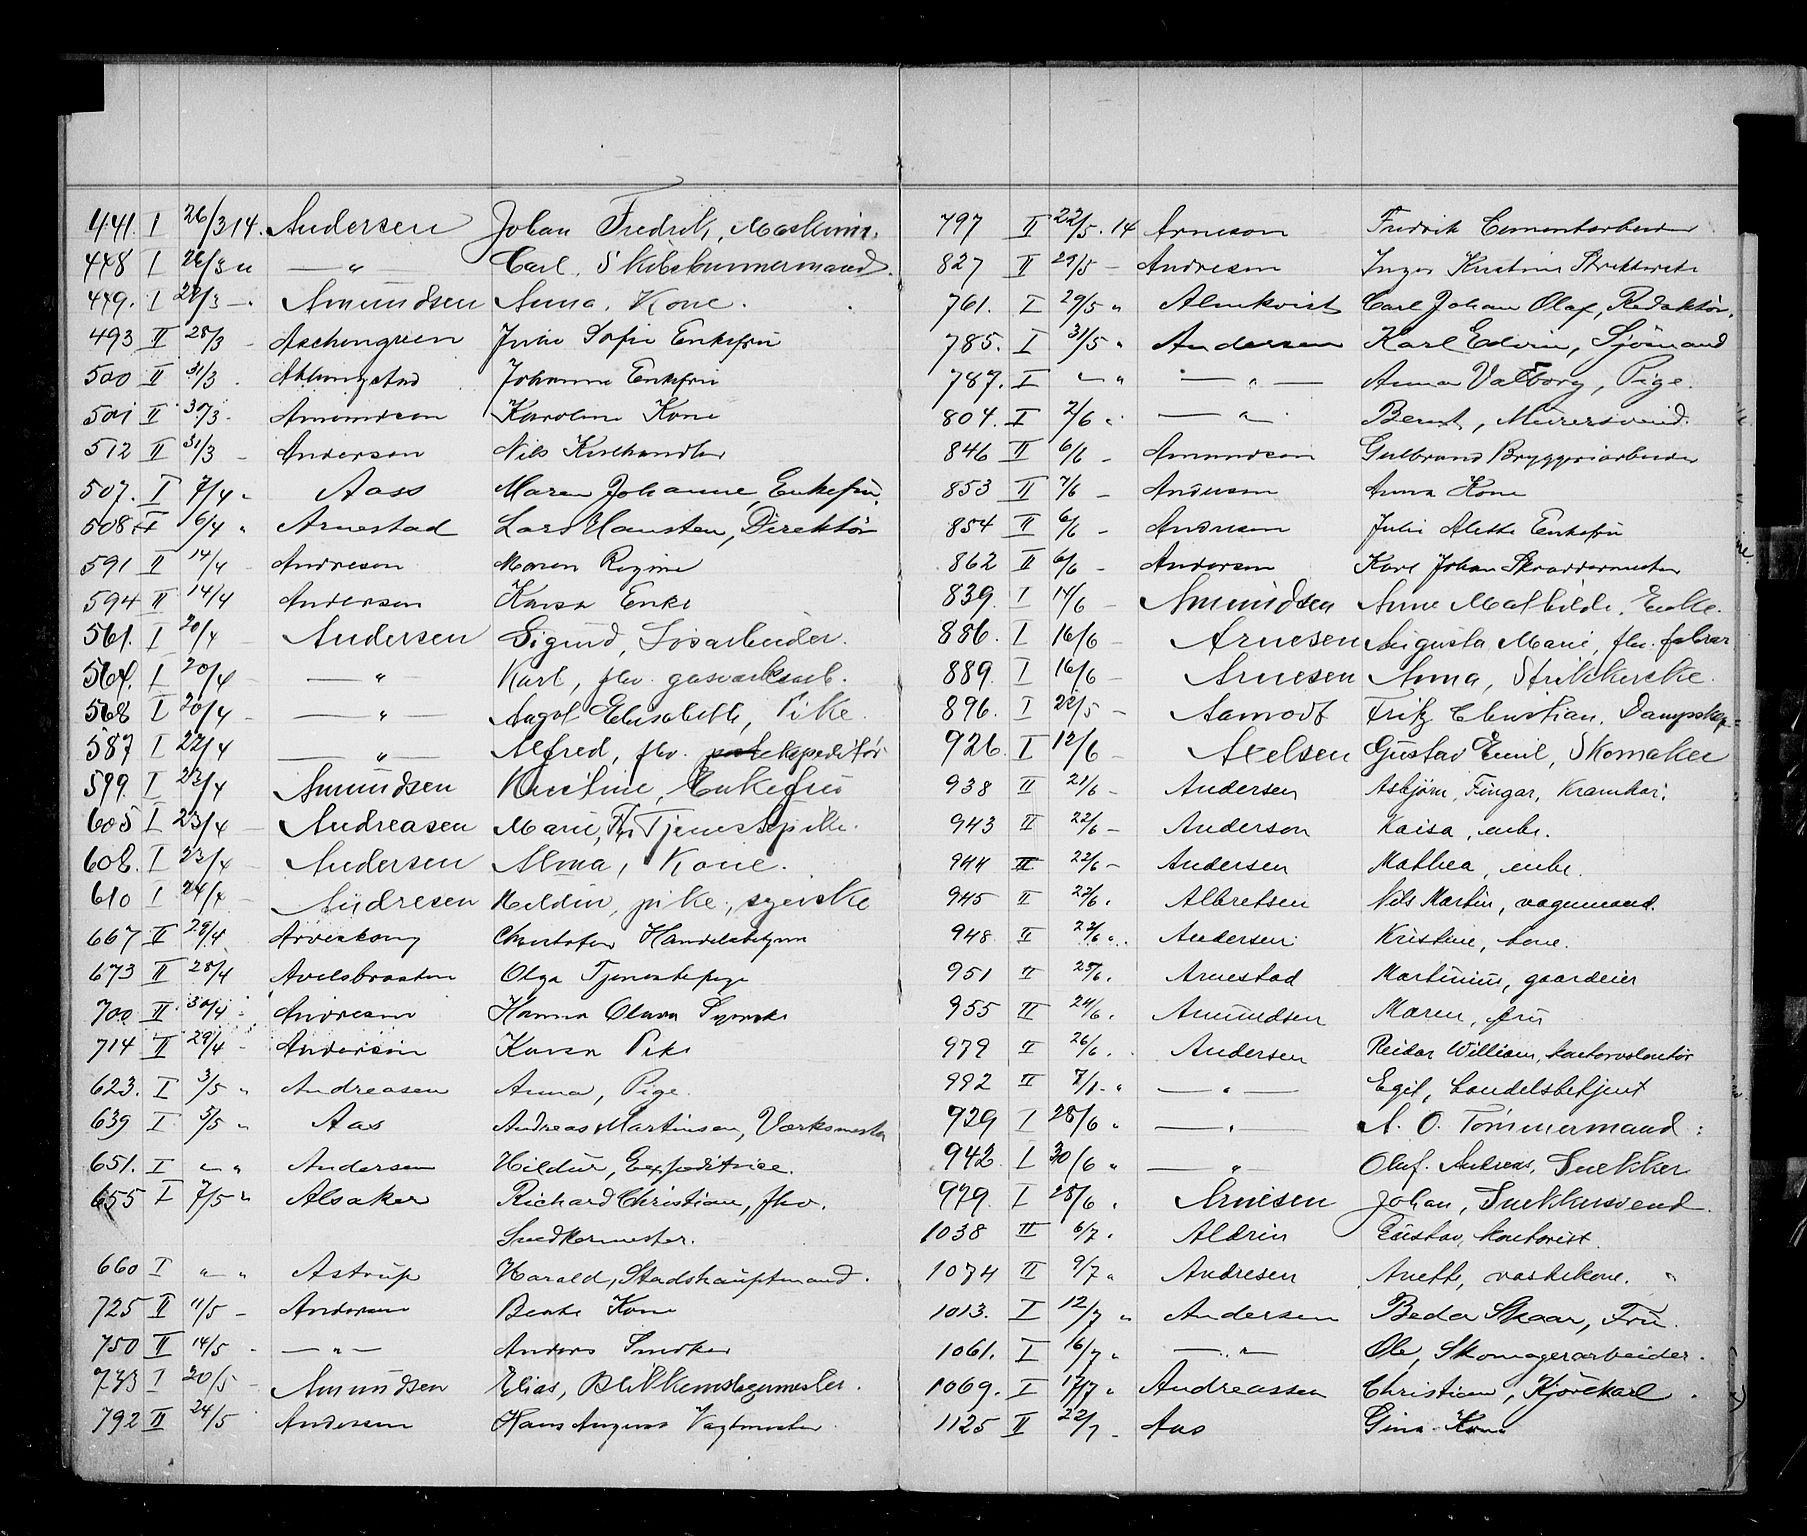 441. I 26/3 14. Andersen Johan Fredrik, Maskinis.
448 I 26/3 " —"— Carl. Skibstømmermand.
449. I 28/3 —. Amundsen Anna, Kone.
493 II 28/3 – Aschengreen Julie Sofie Enkefru
500 II 31/3 . Johanne Enkefru
501 II 30/3 . Amundsen Karoline Kone
512 II 31/3 – Andersen Nils Kulhandler
507. I 7/4 " Aass Maren Johanne, Enkefru.
508 I 6/4 " Arnestad Lars Hansten, Direktør
591 II 14/4 – Andresen Maren Regine
594 II 14/4 Andersen Karen Enke
561. I 20/4 – Andersen Sigurd, Løsarbeider.
564. I 20/4 —"— Karl, fhv. gasverksarb.
568 I 20/4 – —"— Aagot Elisabeth, Pike.
587 I 22/4 —"— Alfred, fhv. ekspeditør
599. I 23/4 Amundsen Kristine, Enkefru
605 I 23/4 – Andreasen Marie, Tjenestepike.
608. I 23/4 – Andersen Alma, Kone.
610 I 24/4 – Andresen Hildur, pike, syerske
667 II 29/4 Christofer Handelsbetjent
673 II 28/4 Avelsbraaten Olga Tjenestepige
700 II 30/4 – Andresen Hanna Olava Syerske
714 II 29/4 – Andersen Karen Pike
623. I 3/5 " Andreasen Anna, Pige.
639 I 5/5 " Aas Andreas Martinsen, Værksmester
651. I " " Andersen Hildur, Expeditrice.
655 I 7/5 " Alsaker Richard Christian, fhv.
Snedkermester.
660 I " " Astrup Harald, Stadshauptmand.
725 II 11/5 – Andersen Beate Kone
750 II 14/5 . —"— Anders Snedker
743 I 20/5 – Amundsen Elias, Blikkenslagermester.
792 II 24/5 Andersen Hans August Vagtmester
797 II 22/5. 14 Arnesen Fredrik Cementarbeider
827 II 29/5 – Andresen Inger Kristine
761. I 29/5 " Almkvist Carl Johan Olaf, Redaktør.
785. I 31/5 " Andersen Karl Edvin, Sjömand
787. I " " —"— Anna Valborg, Pige.
804. I 2/6 " —"— Bernt, Murersvend.
846 II 6/6 – Amundsen Gulbrand Bryggeriarbeider
853 II 7/6 – Andersen Anna Kone
854 II 6/6 – Andresen Julie Alette Enkefru
862 II 6/6 – Andersen Karl Johan Skræddermester
839. I 14/6 – Amundsen Anne Mathilde, Enke.
886. I 16/6 – Arnesen Augusta Marie, fhv.
889. I 16/6 – Arnesen Anna, Strikkerske.
896. I 22/5 – Aamodt Fritz Christian,
926. I 12/6 – Axelsen Gustav Emil, Skomaker
938 II 21/6 – Andersen Asbjørn,
943 II 22/6 – Anderson Kaisa, enke.
944 II 22/6 – Andersen Mathea, enke.
945 II 23/6 . Albretsen Nils Martin, vognmand.
948 II 23/6 ". Andersen Kristine, kone.
951 II 25/6 . Arnestad Martinius, gaardeier
955 II 24/6 . Amundsen Maren, fru
979 II 26/6 . Andersen Reidar William, kontorvolontør
992 II 7/1. " —"— Egil, handelsbetjent
929 I 28/6 " —"— A. O. Tömmermand.
942. I 30/6 " —"— Oluf. Andreas, Snekker
979. I 28/6 . Arnesen Johan, Snekkersvend.
1038 II 6/7 . Aldrin Gustav, kontorist.
1074 II 9/7 " Andresen Anette, vaskekone.
1013. I 12/7 " Andersen Beda Skaar, Fru.
1061. I 16/7 " —"— Ole, Skomagerarbeider.
1069. I 17/7 " Andreassen Christian, Kjörekarl.
1125 II 22/7 – Aas Gina Kone